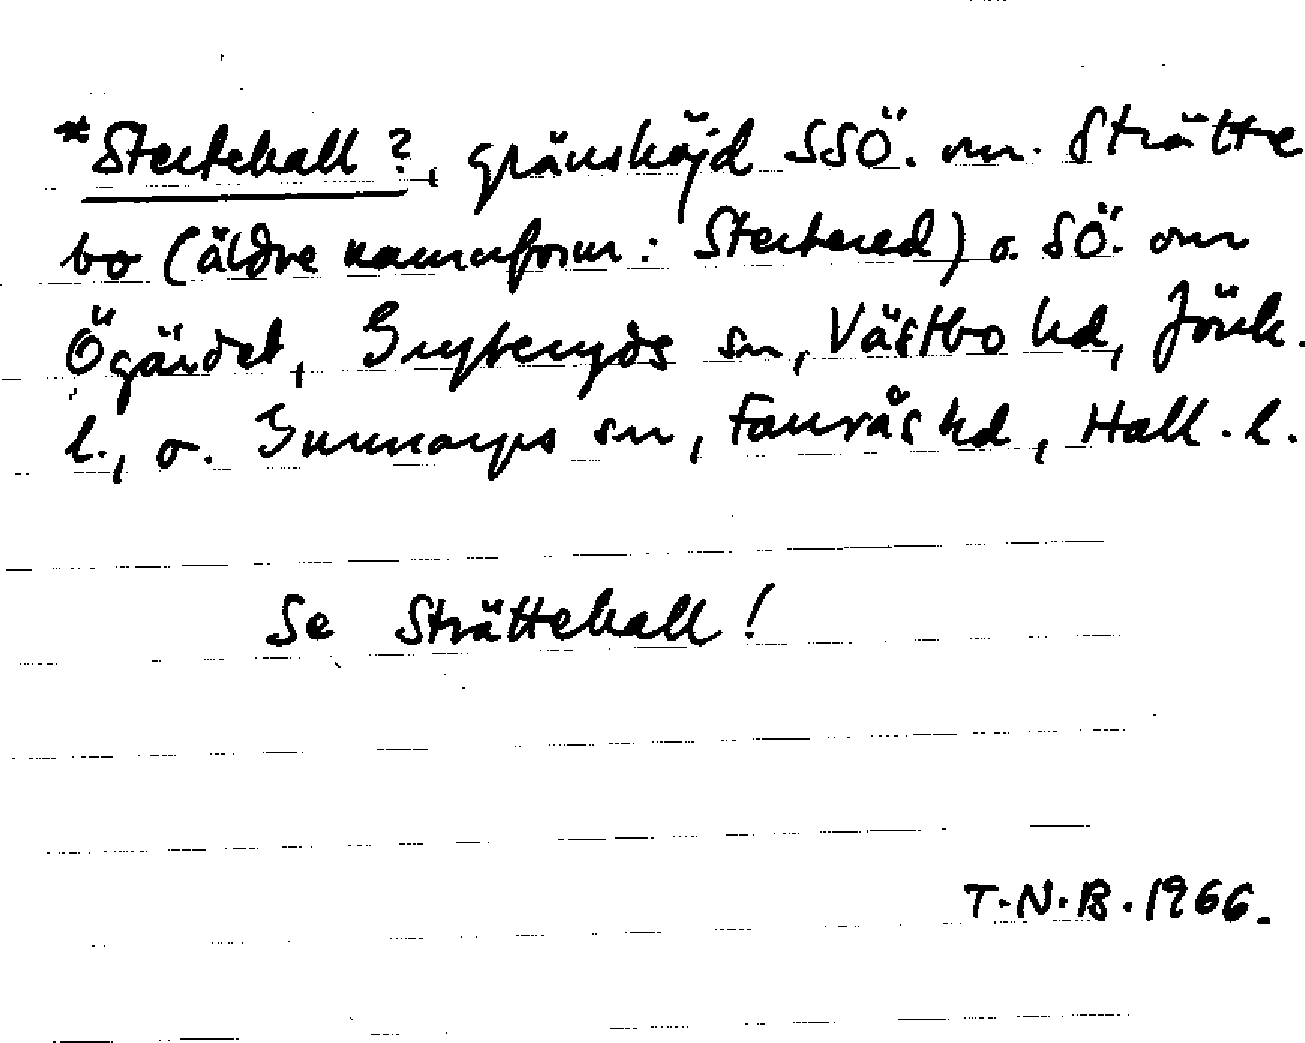 *Sterteball?, gränshöjd SSÖ. om. Strätte
bo (äldre namnform: Stertered) o. SÖ. om
Ögärdet, Gryteryds sn, Västbo hd, Jönk.
l., o. Gunnarps sn, Faurås hd, Hall. l.
Se Strätteball!
T.N.B. 1966.